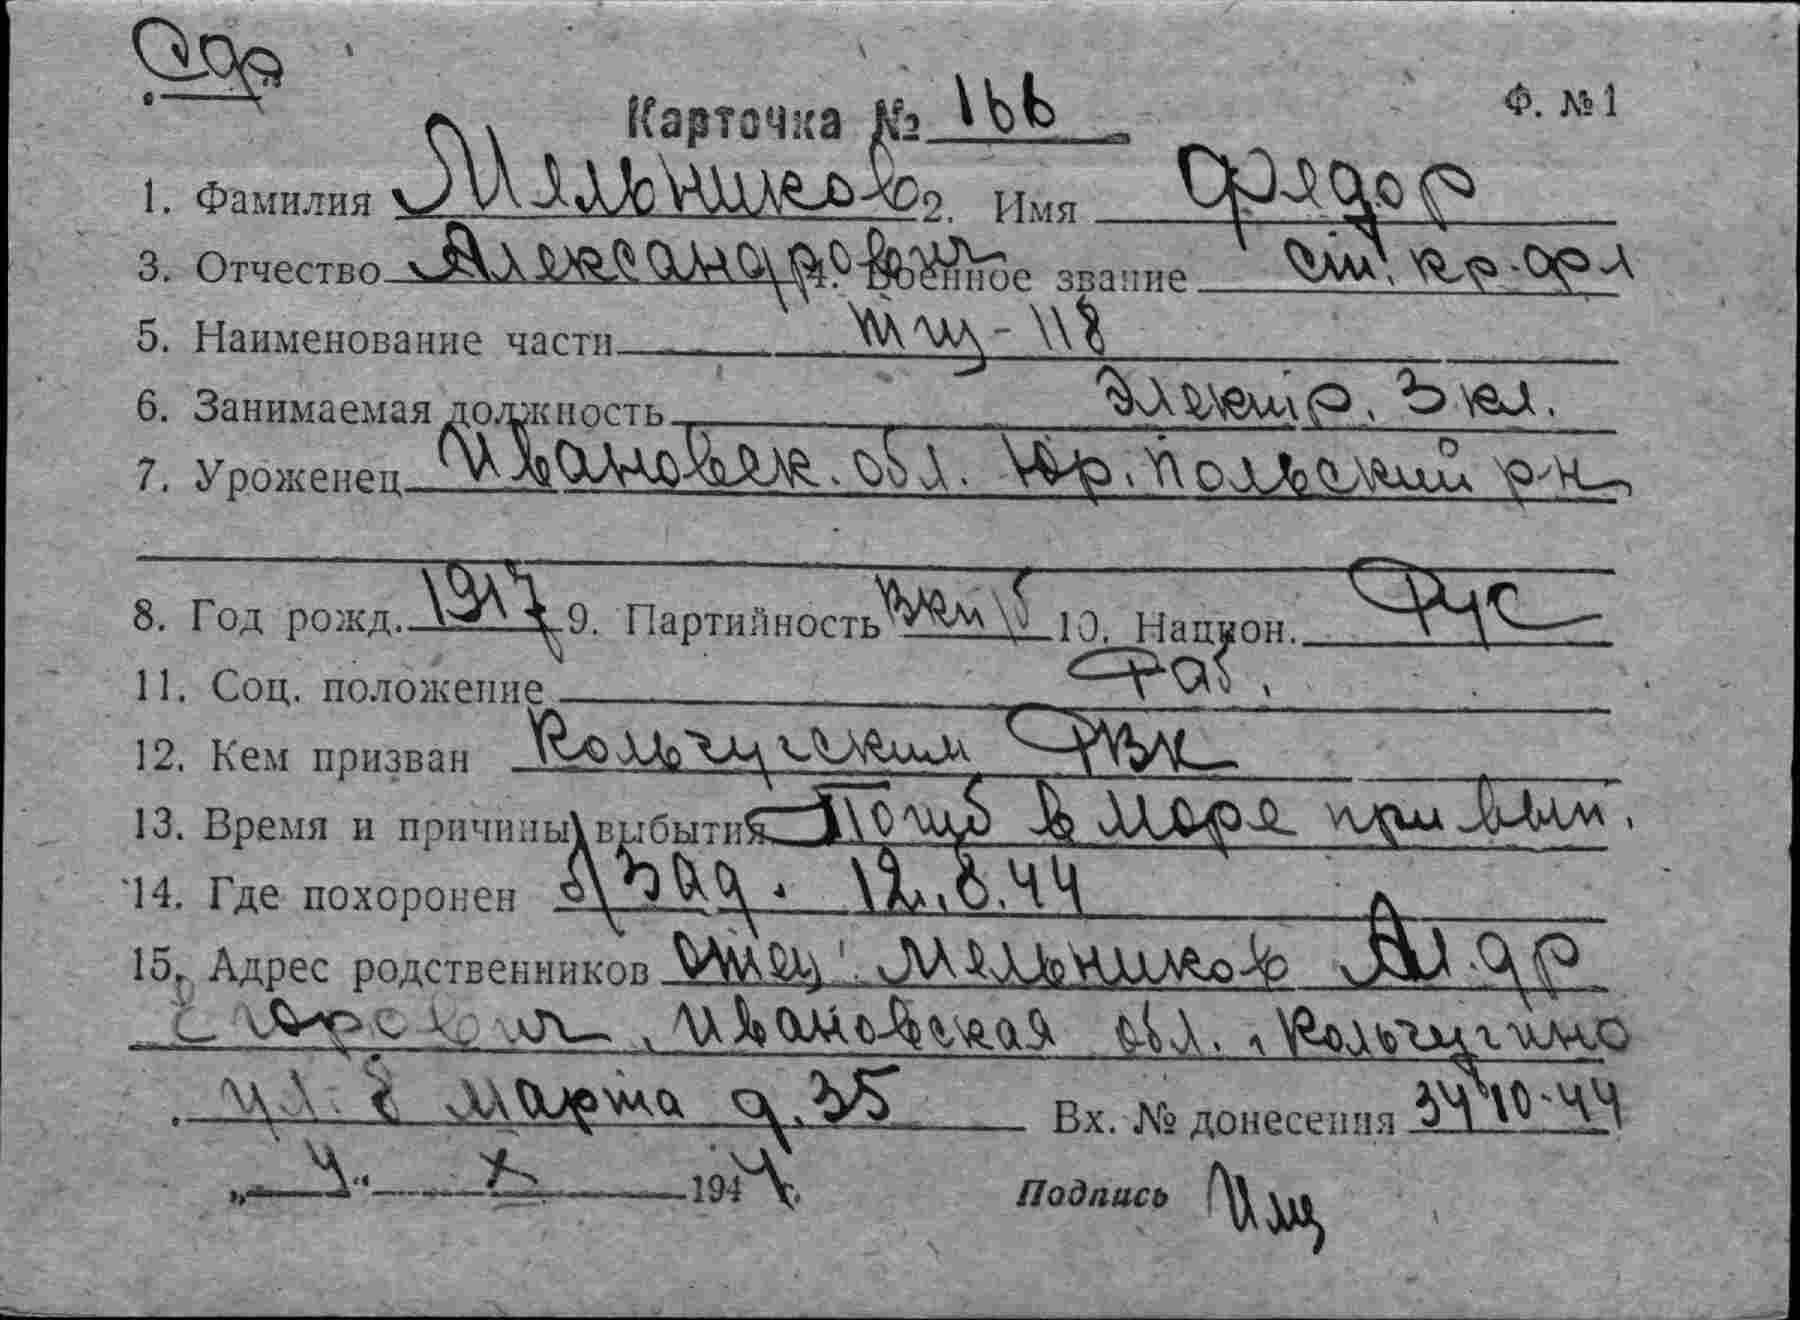 Ф. №1
Карточка № 166
1. Фамилия Мельников 2. Имя Федор
3. Отчество Александрович 4. Военное звание ст. кр-фл
5. Наименование части тщ-118
6. Занимаемая должность электр. 3 кл.
7. Уроженец Ивановск. обл. Юр. Польский р-н
8. Год рожд. 1917 9. Партийность ВКП/б 10. Национ. Рус
11. Соц. положение Раб.
12. Кем призван Кольчугским РВК
13. Время и причины выбытия Погиб в море при вып.
14. Где похоронен б/зад. 12.8.44
15. Адрес родственников отец Мельников Ал-др
Ивановская обл., Кольчугино
ул. 8 марта д. 35 Вх. № донесения
„4“ X 1944 г. Подпись